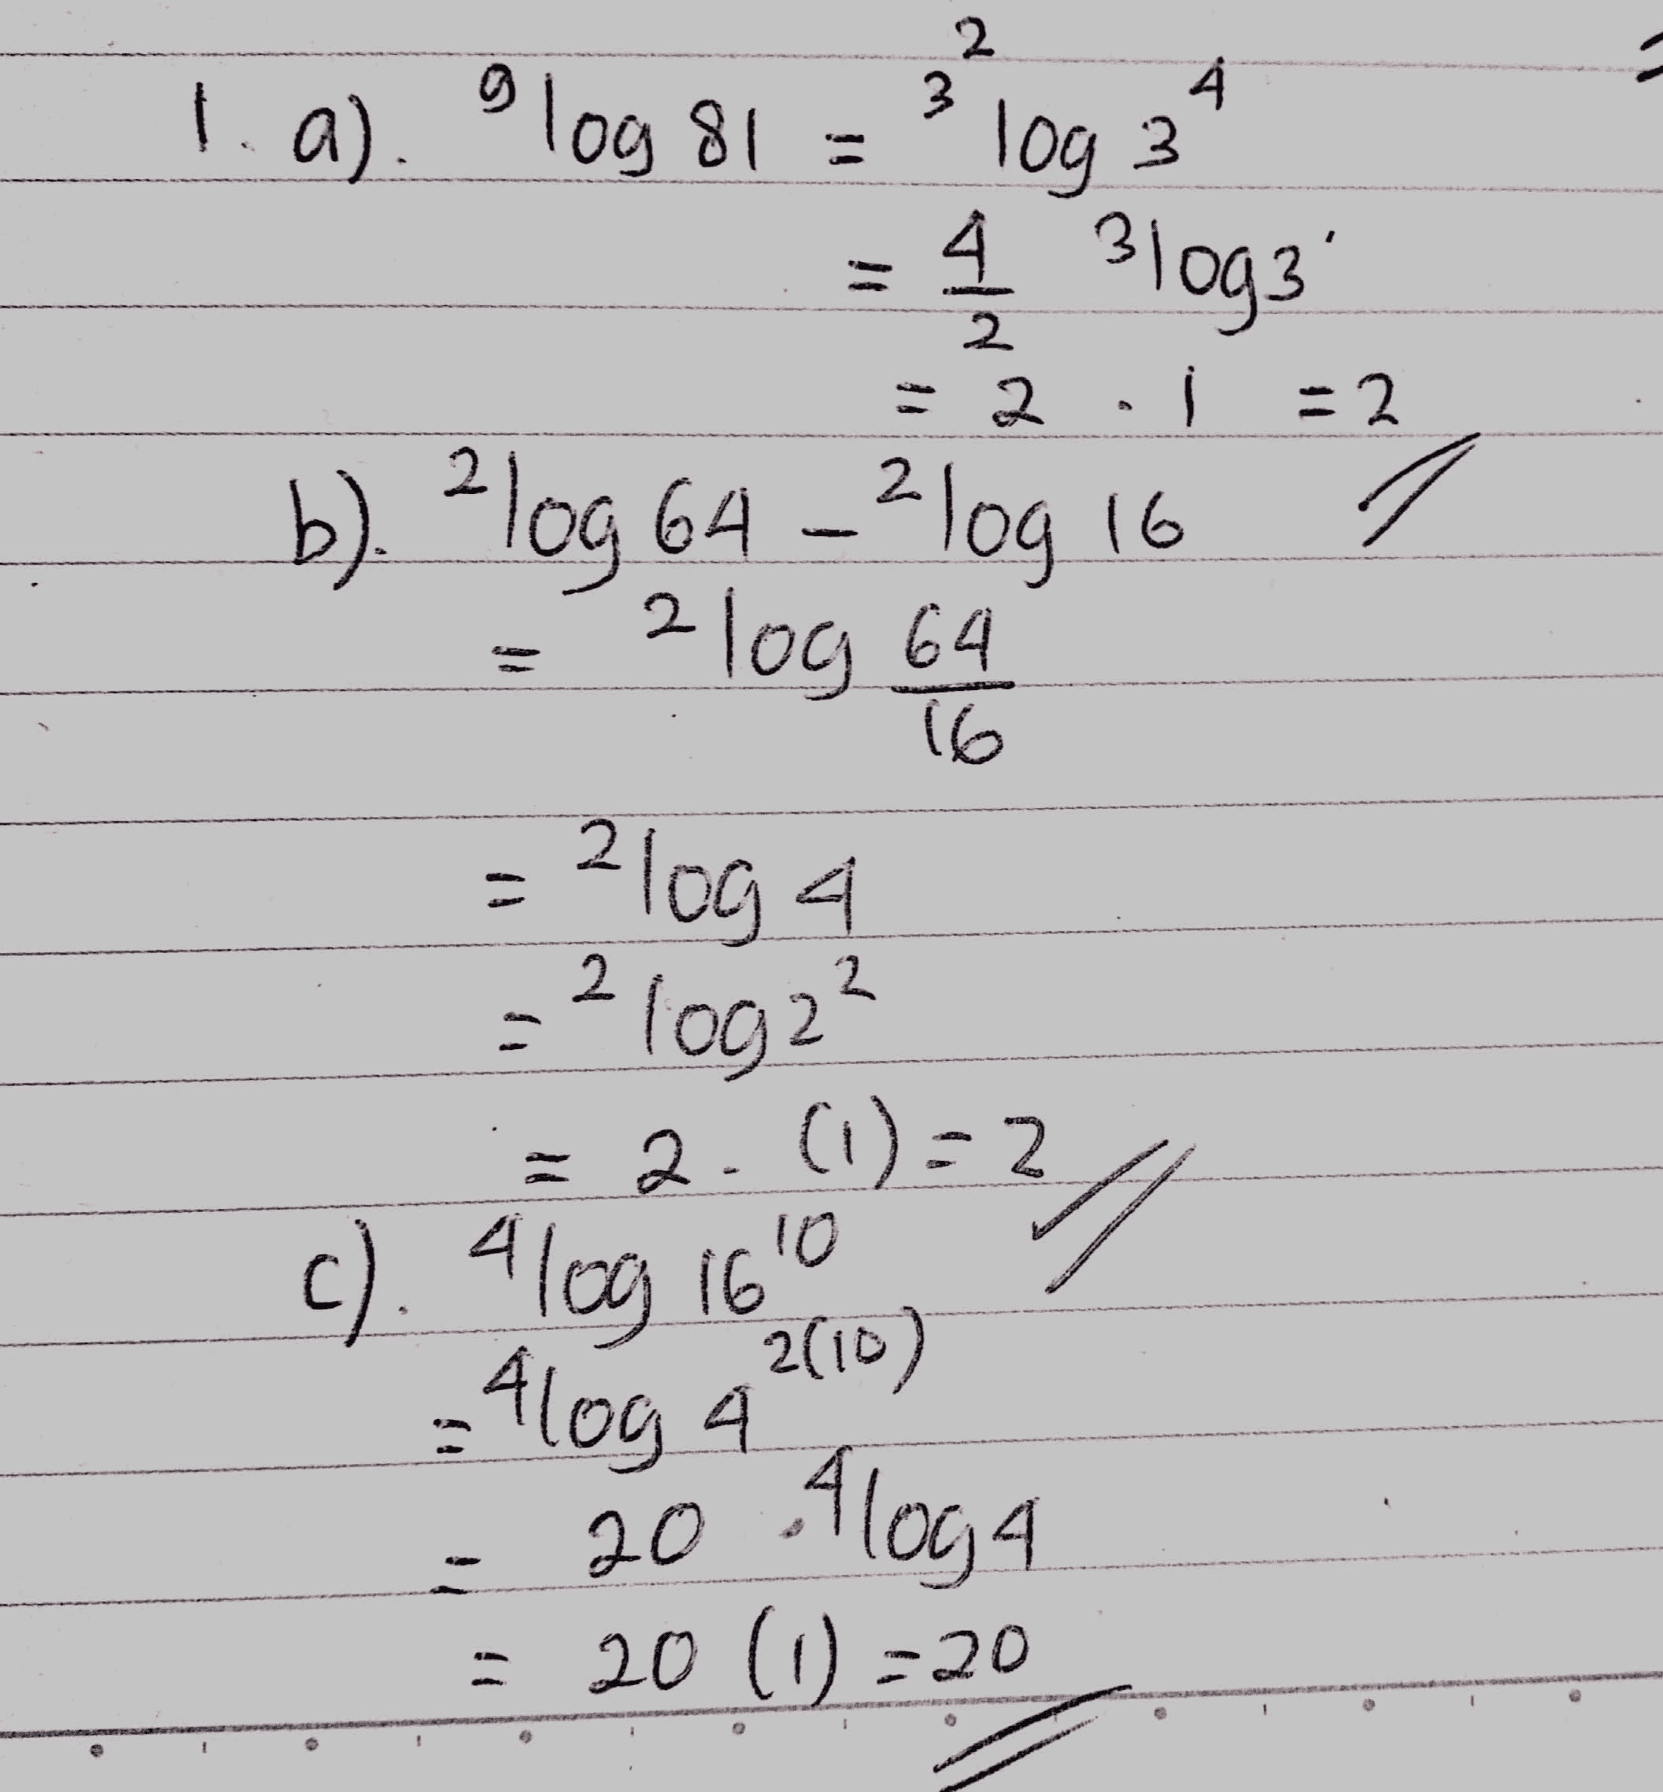 1. a). ⁹log 81 = ^{3^2}log 3⁴
= 4/2 ³log3
= 2 . 1 = 2
b). ²log 64 - ²log 16
= ²log 64/16
= ²log 4
= ²log 2²
= 2 . (1) = 2
c). ⁴log 16¹⁰
= ⁴log 4^{2(10)}
= 20 . ⁴log 4
= 20 (1) = 20